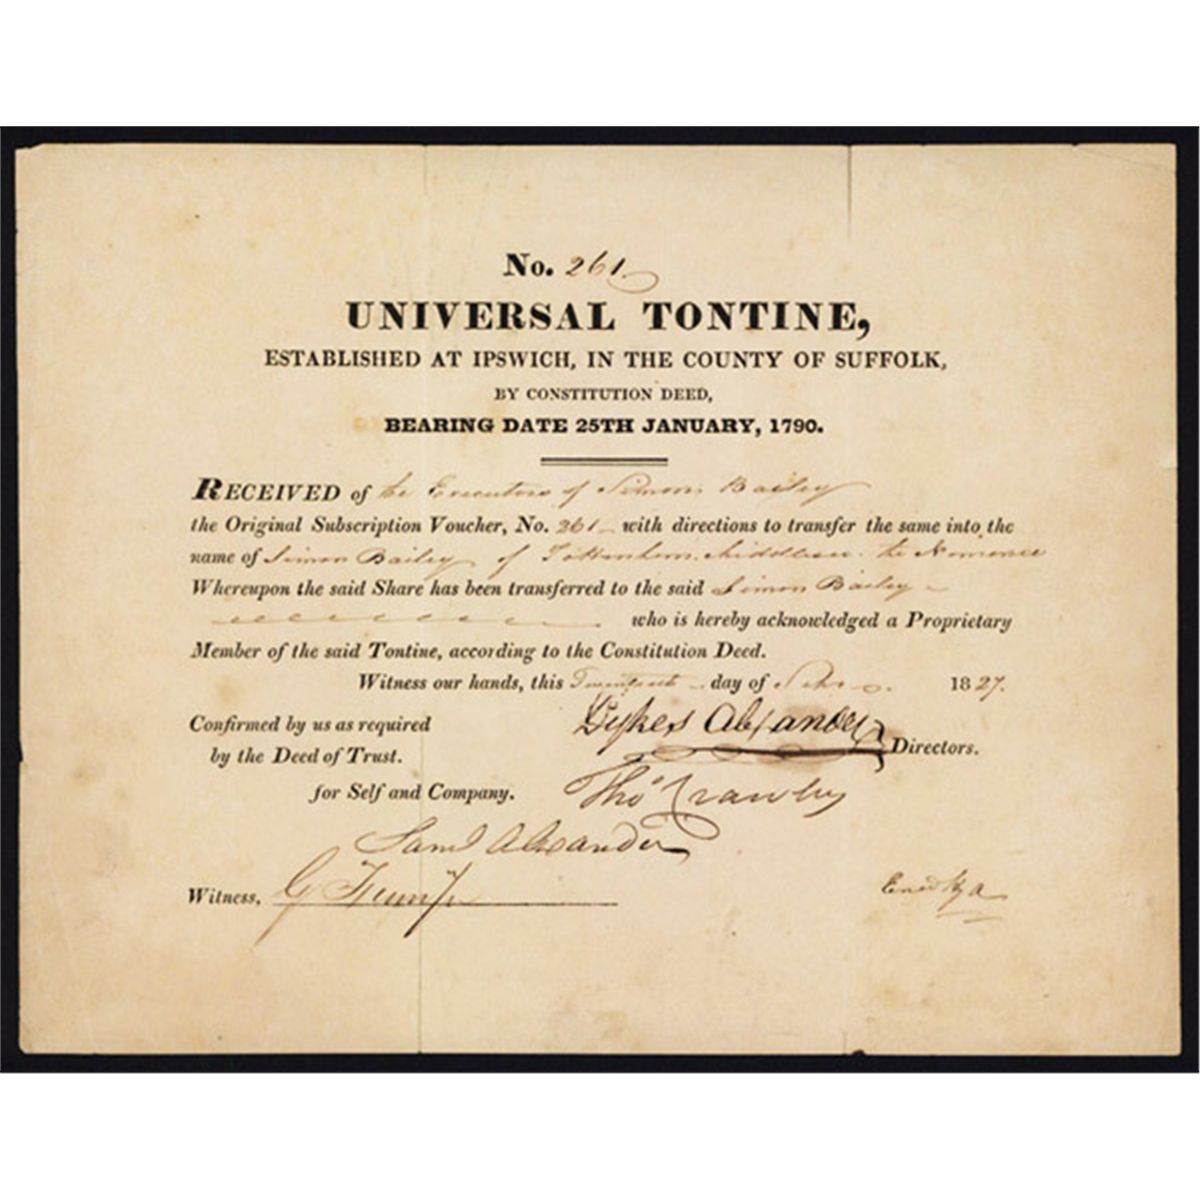 No. 261
UNIVERSAL TONTINE,
ESTABLISHED AT IPSWICH, IN THE COUNTY OF SUFFOLK,
BY CONSTITUTION DEED,
BEARING DATE 25TH JANUARY, 1790.
RECEIVED of the Executors of Simon Bailey
the Original Subscription Voucher, No. 261 with directions to transfer the same into the
name of Simon Bailey of Tottenham Middlesex the Nominee
Whereupon the said Share has been transferred to the said Simon Bailey
who is hereby acknowledged a Proprietary
Member of the said Tontine, according to the Constitution Deed.
Witness our hands, this Twentieth day of 1827.
Confirmed by us as required
by the Deed of Trust.
Dykes Alexander
Directors.
for Self and Company.
Tho Crawley
Saml Alexander
Witness, G